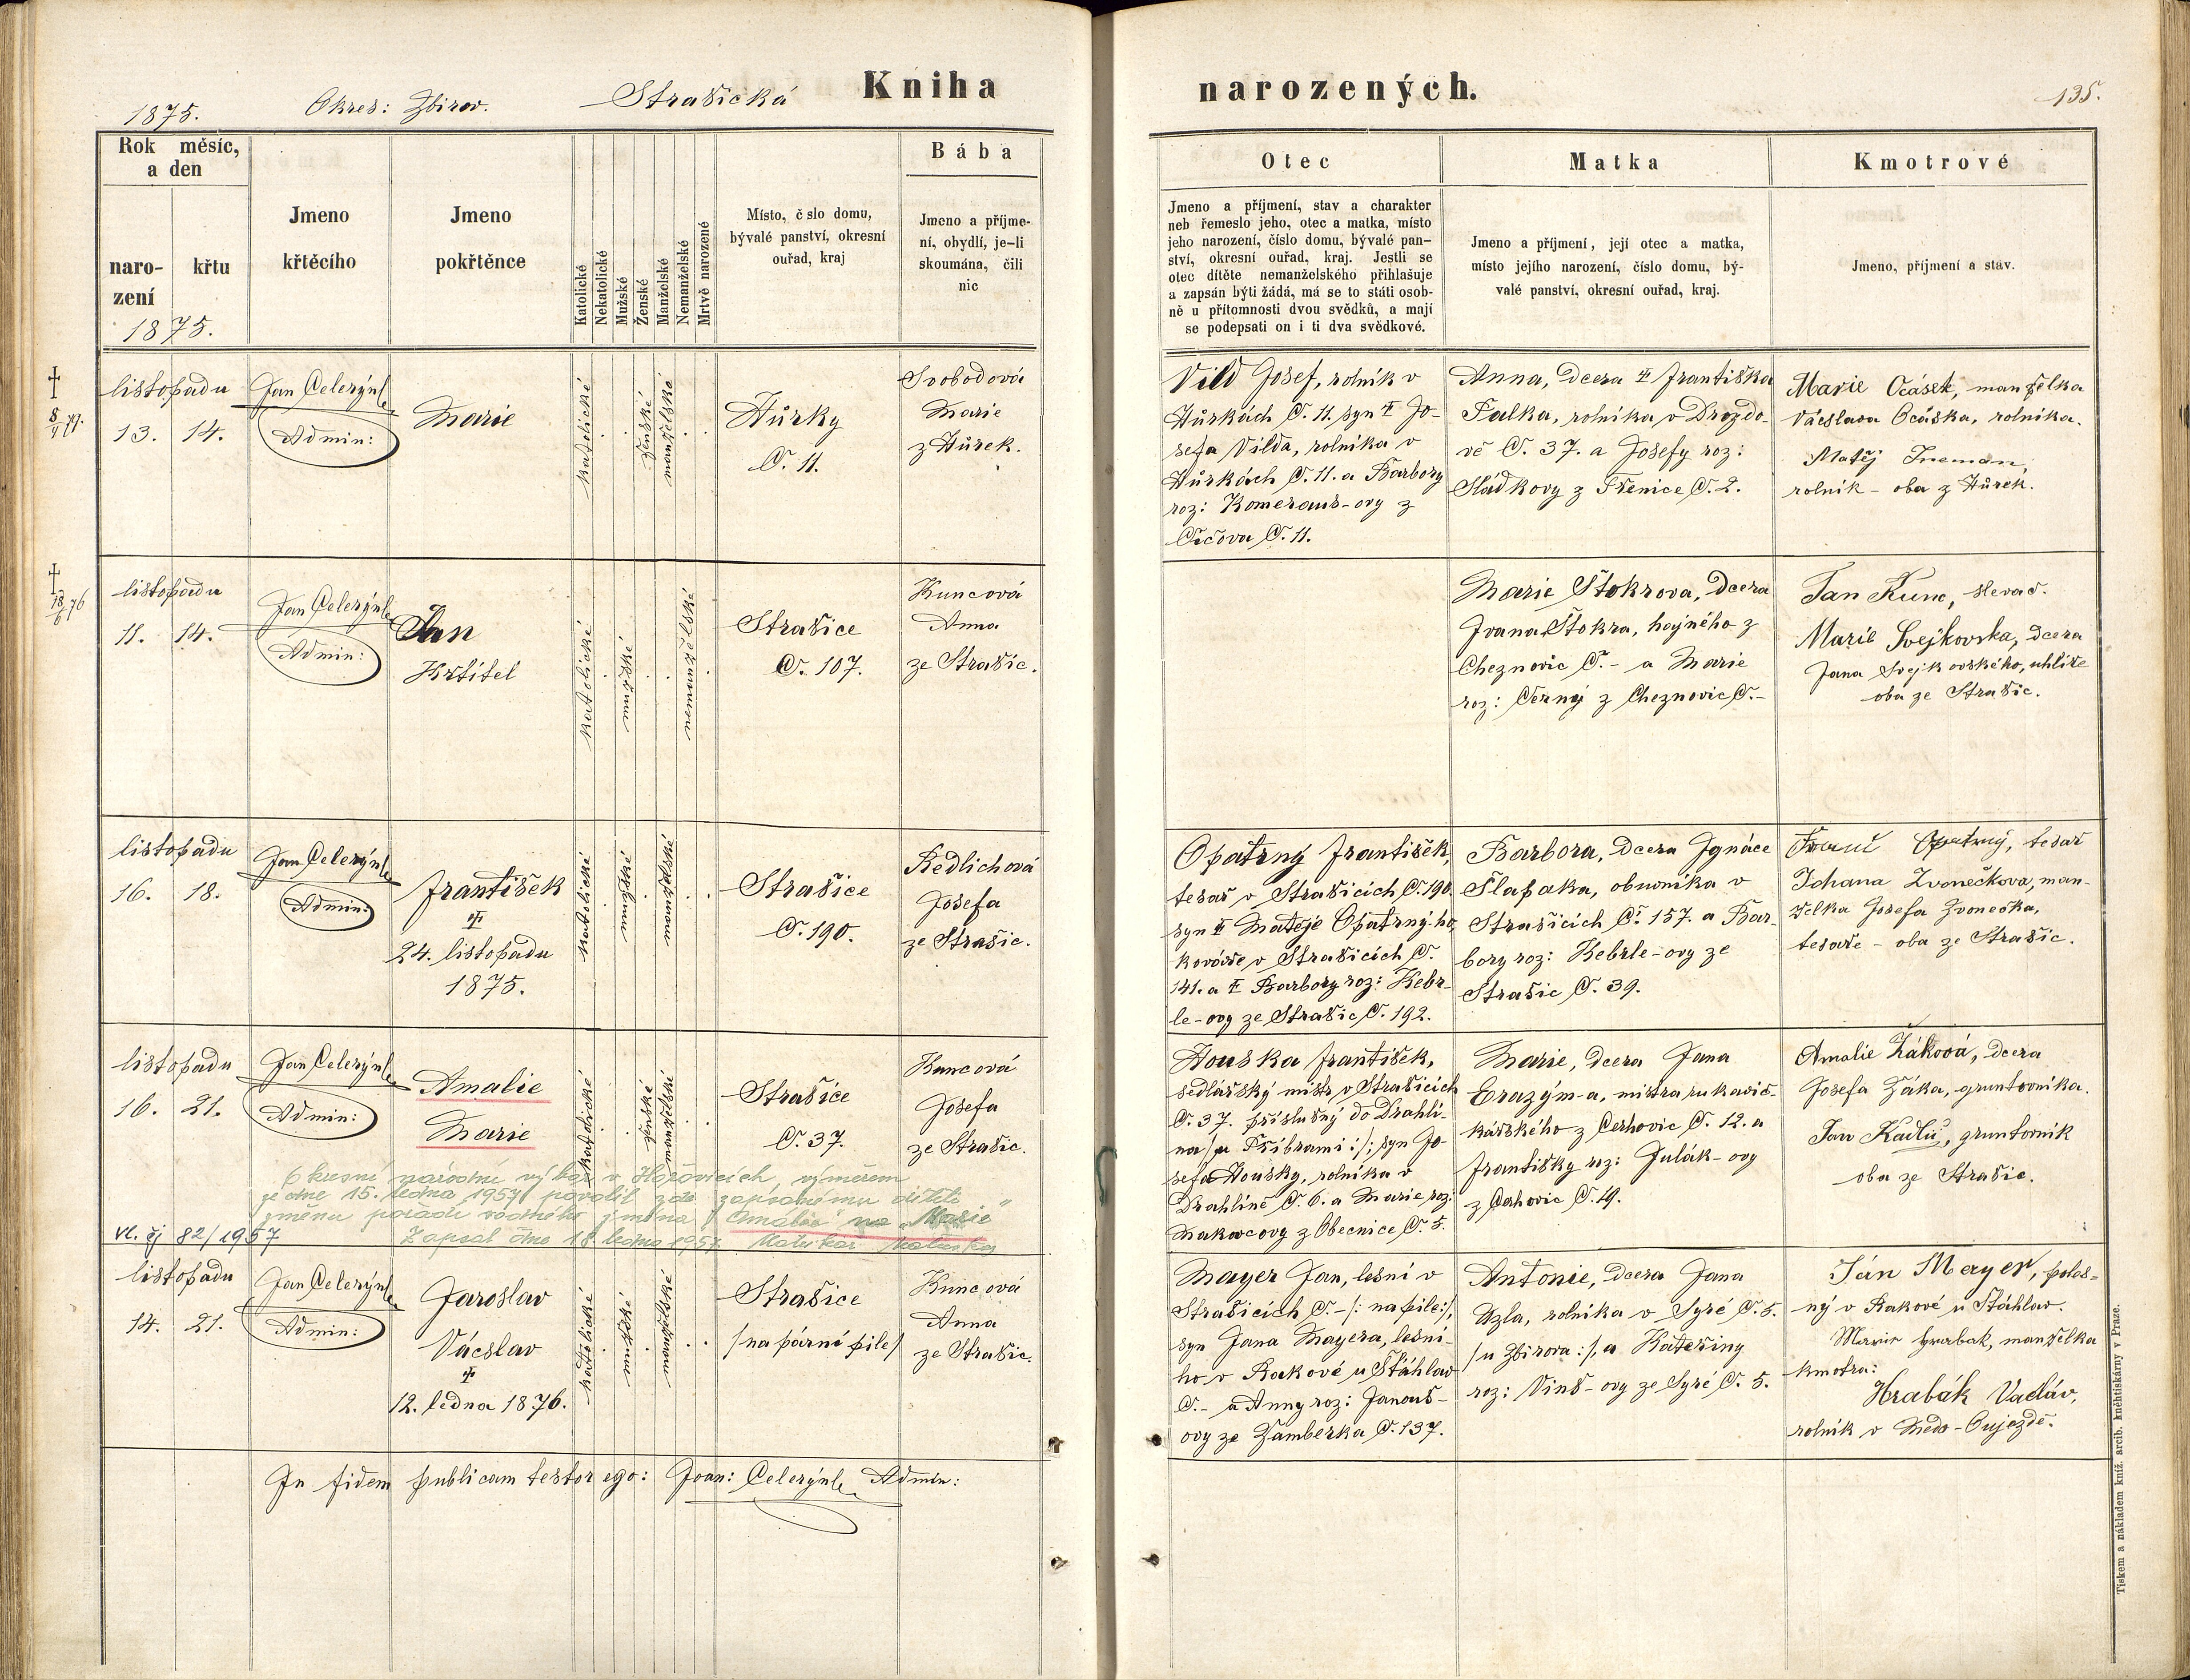 1875.
Okres: Zbirov.
Strašická
Kniha
narozených.
135.
Rok měsíc,
a den
naro-
zení
křtu
1875.
Jmeno
křtěcího
Jmeno
pokřtěnce
Katolické
Nekatolické
Mužské
Ženské
Manželské
Nemanželské
Mrtvě narozené
Místo, č slo domu,
bývalé panství, okresní
ouřad, kraj
Bába
Jmeno a příjme-
ní, obydlí, je-li
skoumána, čili
nic
Otec
Jmeno a příjmení, stav a charakter
neb řemeslo jeho, otec a matka, místo
jeho narození, číslo domu, bývalé pan-
ství, okresní ouřad, kraj. Jestli se
otec dítěte nemanželského přihlašuje
a zapsán býti žádá, má se to státi osob-
ně u přítomnosti dvou svědků, a mají
se podepsati on i ti dva svědkové.
Matka
Jmeno a příjmení, její otec a matka,
místo jejího narození, číslo domu, bý-
valé panství, okresní ouřad, kraj.
Kmotrové
Jmeno, příjmení a stav.
listopadu
13. 14.
Jan Celerýn
Admin:
Marie
katolické
ženské
manželské
Hůrky
Č. 11.
Svobodová
Marie
z Hůrek.
Vild Josef, rolník v
Hůrkách Č. 11. syn † Jo-
sefa Vilda, rolníka v
Hůrkách Č. 11. a Barbory
roz: Komerous-ovy z
Číčova Č. 11.
Anna, dcera † Františka
Falka, rolníka v Drozdo-
vě Č. 37. a Josefy roz:
Sládkovy z Třenice Č. 2.
Marie Ocásek, manželka
Václava Ocáska, rolníka.
Matěj
rolník - oba z Hůrek.
listopadu
11. 14.
Jan Celerýn
Admin:
Jan
Křtitel
katolické
mužské
nemanželské
Strašice
Č. 107.
Kuncová
Anna
ze Strašic.
Marie Štokrova, dcera
Ivana Štokra, hajného z
Cheznovic Č. - a Marie
roz: Černý z Cheznovic Č. -
Jan Kunc, slevač.
Marie Svejkovska, dcera
Jana Svejkovského, uhlíře
oba ze Strašic.
listopadu
16. 18.
Jan Celerýn
Admin:
František
†
24. listopadu
1875.
katolické
mužské
manželské
Strašice
Č. 190.
Redlichová
Josefa
ze Strašic.
Opatrný František,
tesař v Strašicích Č. 190,
syn † Matěje Opatrný-ho,
kováře v Strašicích Č.
141. a † Barbory roz: Kebr-
le-ovy ze Strašic Č. 192.
Barbora, dcera Ignáce
Šlapaka, obuvníka v
Strašicích Č. 157. a Bar-
bory roz: Kebrle-ovy ze
Strašic Č. 39.
Opatrný, tesař
Johana Zvonečkova, man-
želka Josefa Zvonečka,
tesaře - oba ze Strašic.
listopadu
16. 21.
Jan Celerýn
Admin:
Amalie
Marie
katolické
ženské
manželské
Strašice
Č. 37.
Kuncová
Josefa
ze Strašic.
Houska František,
sedlářský mistr v Strašicích
Č. 37. příslušný do Drahlí-
na /:u Příbrami:/, syn Jo-
sefa Housky, rolníka v
Drahlíně Č. 6. a Marie roz:
Makovcovy z Obecnice Č. 5.
Marie, dcera Jana
Erazým-a, mistra rukavič-
kářského z Cerhovic Č. 12. a
Františky roz: Julák-ovy
z Cerhovic Č. 19.
Amalie Žáková, dcera
Josefa Žáka, gruntovníka.
Jan Kadlec, gruntovník
oba ze Strašic.
Okresní národní výbor v Hořovicích, výměrem
ze dne 15. ledna 1957 povolil zde zapsanému dítěti
změnu pořadí rodného jména "Amálie" na "Marie"
Zapsal dne 18. ledna 1957 Matrikář
vl. čj 82/1957
listopadu
14. 21.
Jan Celerýn
Admin:
Jaroslav
Václav
†
12. ledna 1876.
katolické
mužské
manželské
Strašice
/na párné pile/
Kuncová
Anna
ze Strašic.
Mayer Jan, lesní v
Strašicích Č. - /: na pile:/,
syn Jana Mayera, lesní-
ho v Rakové u Šťáhlav
Č. - a Anny roz: Janouš-
ovy ze Žamberka Č. 137.
Antonie, dcera Jana
Uzla, rolníka v Syré Č. 5.
/u Zbirova:/, a Kateřiny
roz: Vinš-ovy ze Syré Č. 5.
Ján Mayer, poles-
ný v Rakové u Šťáhlav.
Marie Hrabak, manželka
kmotra:
Hrabák Vacláv,
rolník v Medo-Oujezdě.
In fidem publicam testor ego: Joan: Celerýn Admin:
Tiskem a nákladem kníž. arcib. knihtiskárny v Praze.